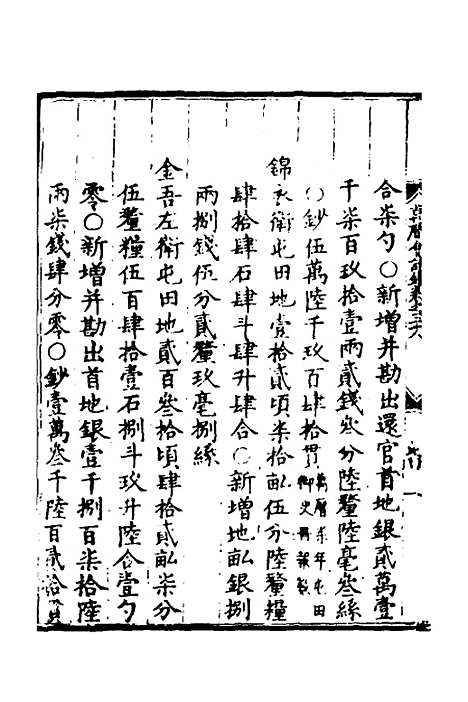 合柒勺○新增并勘出還官首地銀貳萬壹
千柒百玖拾壹兩貳錢叁分陸釐陸毫叁絲
○鈔伍萬陸千玖百肆拾貫萬曆柒年屯田御史冊報數
錦衣衛屯田地壹拾貳頃柒拾畝伍分陸釐糧
肆拾肆石肆斗肆升肆合○新增地畝銀捌
兩捌錢伍分貳釐玖毫捌絲
金吾左衛屯田地貳百叁拾頃肆拾貳畝柒分
伍釐糧伍百肆拾壹石捌斗玖升陸合壹勺
零○新增并勘出首地銀壹千捌百柒拾陸
兩柒錢肆分零○鈔壹萬叁千陸百貳拾